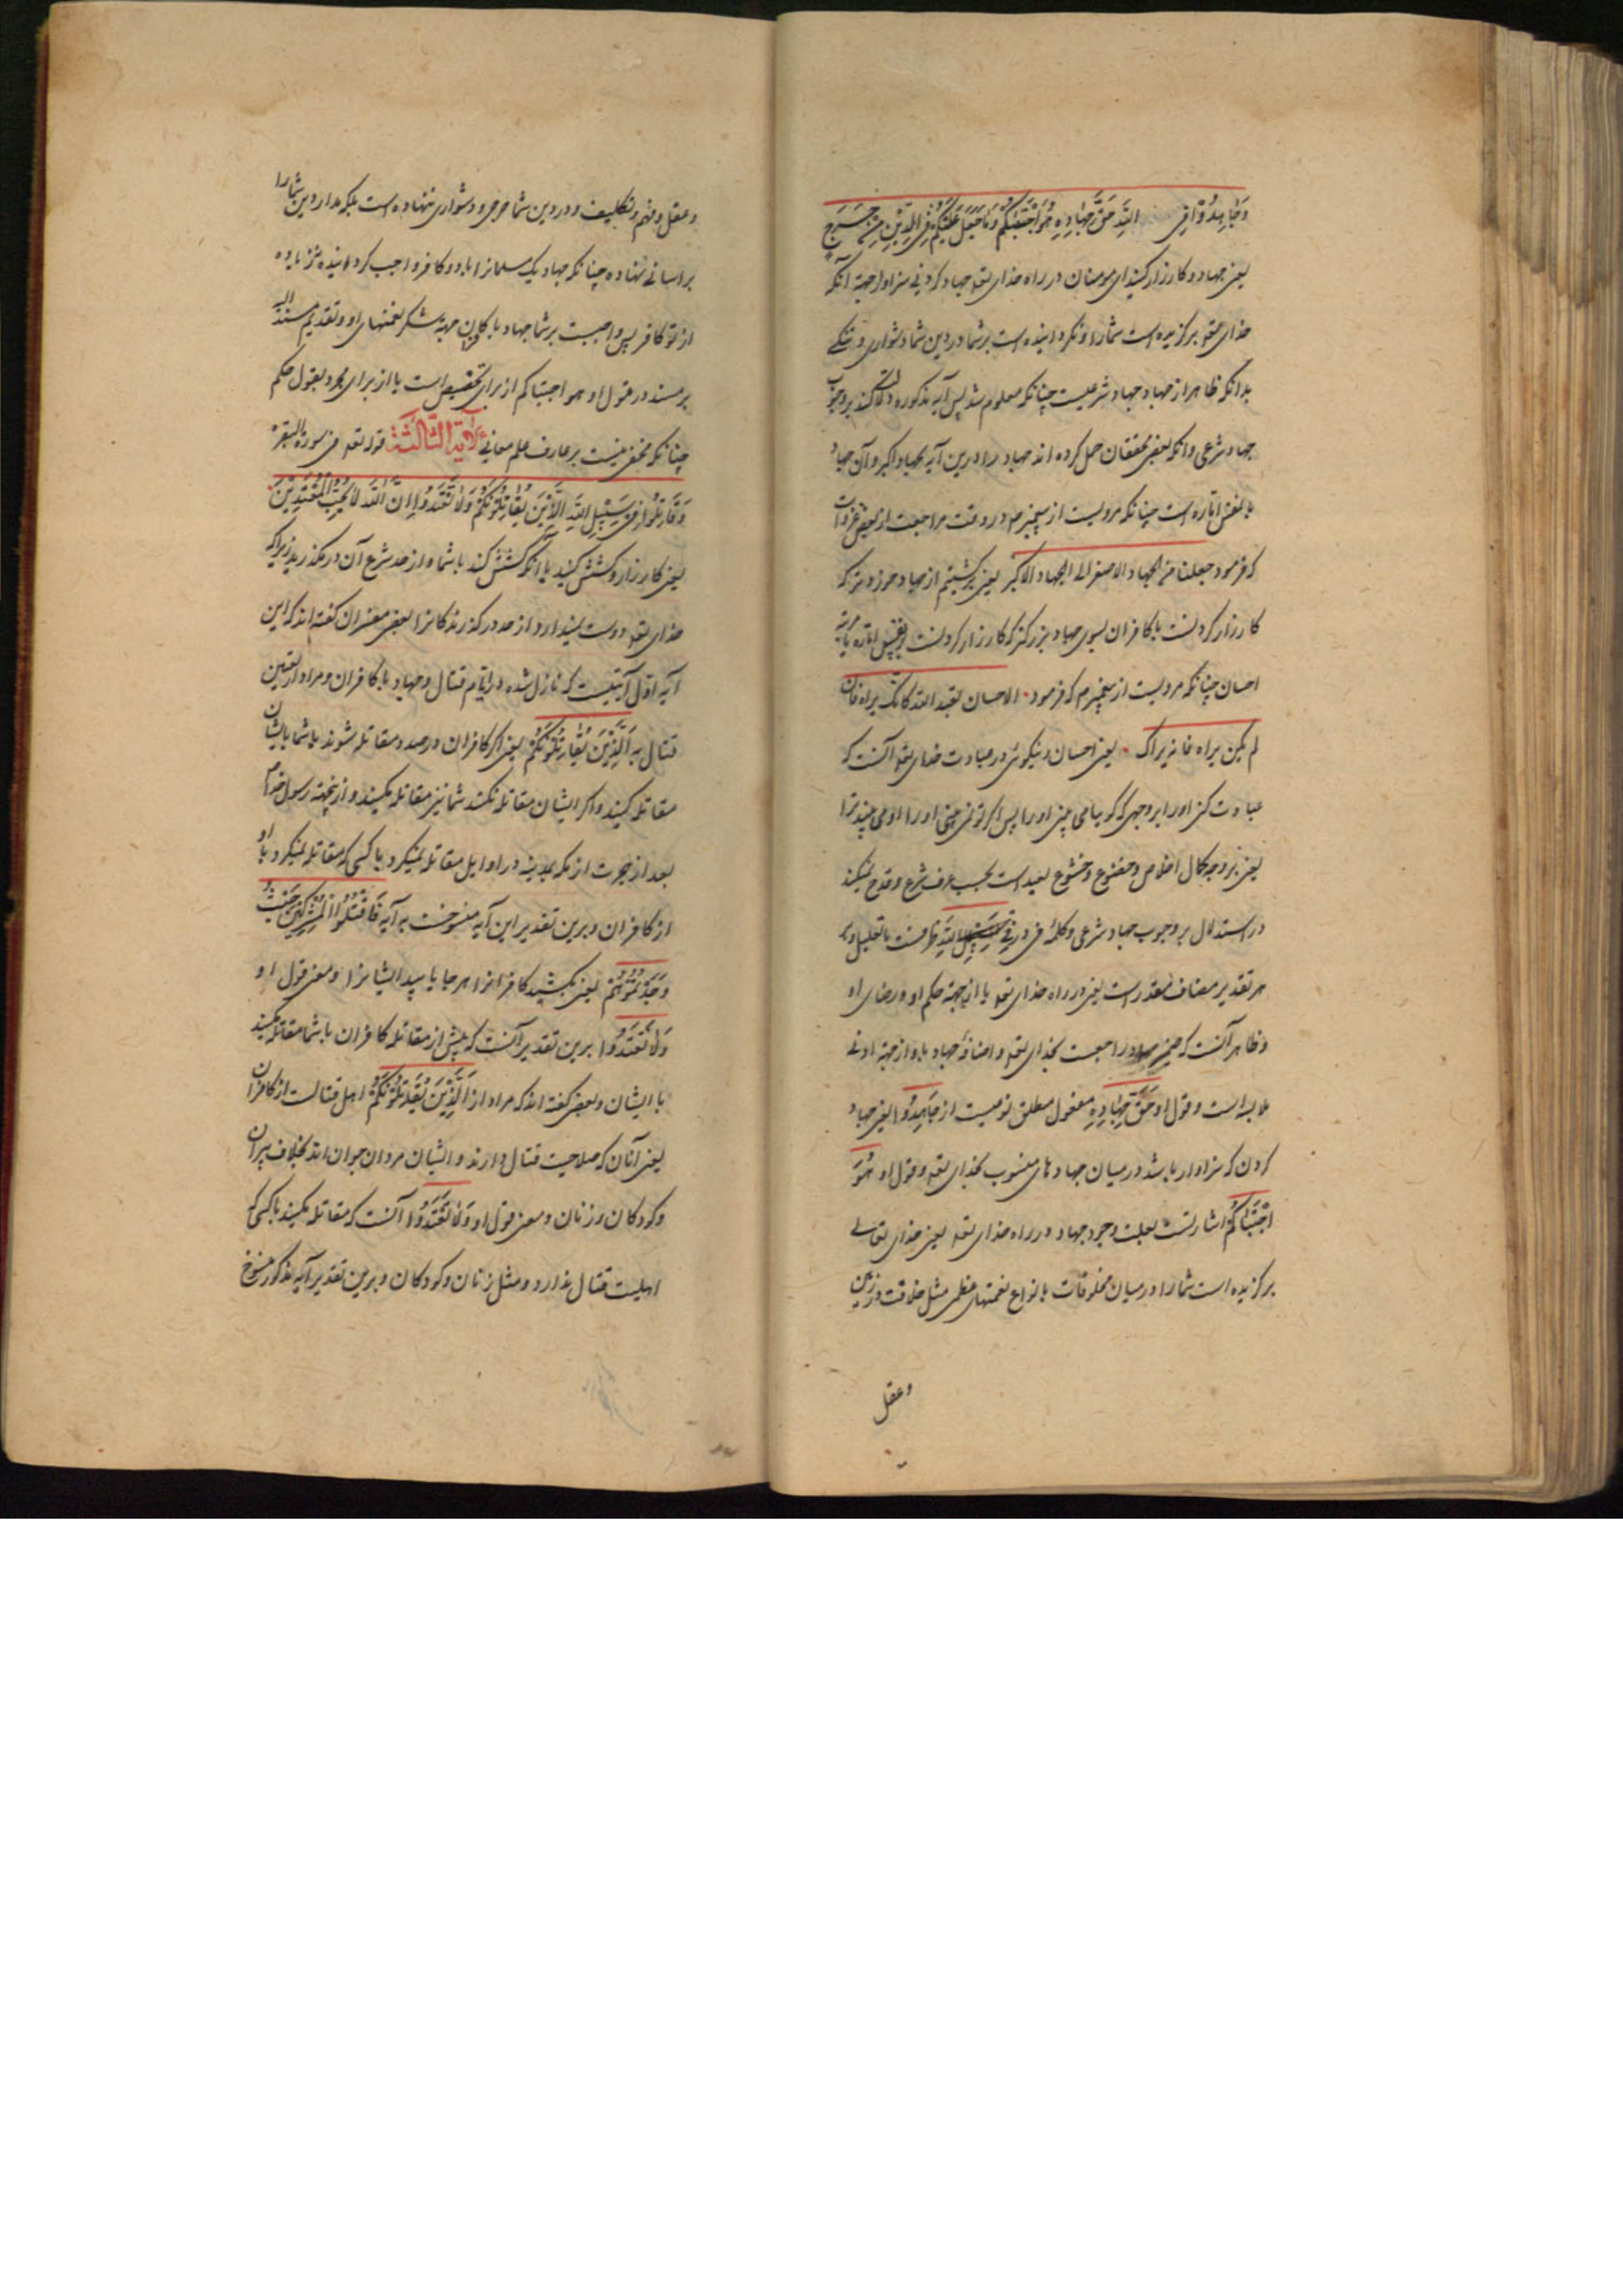 وَجَاهِدُوا فِی اللَّهِ حَقَّ جِهَادِهِ هُوَ اجْتَبَیٰکُمْ وَمَا جَعَلَ عَلَیْکُمْ فِی الدِّیْنِ مِنْ حَرَجٍ
یعنی جهاد و کارزار کنید ای مومنان در راه خدای تعه جهاد کردنی سزاوار جهة آنکه
خدای تعه برکزیده است شمارا ونکردانیده است بر شما در دین شما دشواری و تنکی
بدانکه ظاهر از جهاد جهاد شرعیست چنانکه معلوم شد پس آیه مذکوره دلالت کند بر وجوب
جهاد شرعی وآنکه بعضی محققان حمل کرده اند جهاد را درین آیه بجهاد اکبر وآن جهاد
با نفس اماره است چنانکه مرویست از پیغمبر صم در وقت مراجعت از بعضی غزوات
که فرمود جعلنا من الجهاد الاصغر الی الجهاد الاکبر یعنی برکشتیم از جهاد خوردتر که
کارزار کردنست با کافران بسوی جهاد بزرکتر که کارزار کردنست با نفس اماره یا مرتبه
احسان چنانکه مرویست از پیغمبر صم که فرمود الاحسان ان تعبد الله کانک تراه فان
لم تکن تراه فانه یراک یعنی احسان و نیکوئی در عبادت خدای تعه آنست که
عبادت کنی اورا بر وجهی که کویا می بینی اورا پس اکر تو نمی بینی اورا او می بیند ترا
یعنی بر وجه کمال اخلاص و خضوع و خشوع بعید است بحسب عرف شرع وقدح نمیکند
در استدلال بر وجوب جهاد شرعی وکلمه فی در فِی اللَّهِ ظرفیست یا تعلیل و بر
هر تقدیر مضاف مقدر است یعنی در راه خدای تعه یا از جهة حکم او و رضای او
وظاهر آنست که ضمیر جهاده راجعست بخدای تعه و اضافهٔ جهاد باو از جهة ادنی
ملابسه است وقول او حَقَّ جِهَادِهِ مفعول مطلق نوعیست از جَاهِدُوا یعنی جهاد
کردن که سزاوار باشد در میان جهادهای منسوب بخدای تعه وقول او هُوَ
اجْتَبَیٰکُمْ اشارتست بعلت وجوب جهاد در راه خدای تعه یعنی خدای تعالی
برکزیده است شمارا در میان مخلوقات بانواع نعمتهای عظمی مثل خلافت در زمین
وعقل
وعقل و فهم و تکلیف و در دین شما حرجی و دشواری ننهاده است بلکه مدار دین شمارا
بر اسانی نهاده چنانکه جهاد یک مسلمانرا با دو کافر واجب کردانیده نه زیاده
از دو کافر پس واجبست بر شما جهاد با کافران جهة شکر نعمتهای او وتقدیم مسند الیه
بر مسند در قول او هو اجتباکم از برای تخصیص است یا از برای مجرد تقول حکم
چنانکه مخفی نیست بر عارف علم معانی اَلْآیَةُ الثَّالِثَةُ قوله تعه فی سورة البقره
وَقَاتِلُوا فِی سَبِیْلِ اللَّهِ الَّذِیْنَ یُقَاتِلُوْنَکُمْ وَلَا تَعْتَدُوا اِنَّ اللَّهَ لَا یُحِبُّ الْمُعْتَدِیْنَ
یعنی کارزار و کشش کنید با آنکه کشش کند با شما و از حد شرع آن در مکذرید زیرا که
خدای تعه دوست نمیدارد از حد در کذرندکانرا بعضی مفسران کفته اند که این
آیه اول آیتیست که نازل شده در ایام قتال وجهاد با کافران و مراد از تعیین
قتال به اَلَّذِیْنَ یُقَاتِلُوْنَکُمْ یعنی اکر کافران در صدد مقاتله شوند با شما با ایشان
مقاتله کنید واکر ایشان مقاتله نکنند شما نیز مقاتله مکنید و از نجهة رسول خدا صم
بعد از هجرت از مکه بمدینه در اوایل مقاتله نمیکرد با کسی که مقاتله نمیکرد با او
از کافران وبرین تقدیر این آیه منسوخست به آیه فَاقْتُلُوا الْمُشْرِکِیْنَ حَیْثُ
وَجَدْتُمُوْهُمْ یعنی بکشید کافرانرا هر جا یابید ایشانرا ومعنی قول او
وَلَا تَعْتَدُوا برین تقدیر آنست که پیش از مقاتله کافران با شما مقاتله مکنید
با ایشان وبعضی کفته اند که مراد از اَلَّذِیْنَ یُقَاتِلُوْنَکُمْ اهل قتالست از کافران
یعنی آنان که صلاحیت قتال دارند و ایشان مردان جوان اند بخلاف پیران
وکودکان وزنان ومعنی قول او وَلَا تَعْتَدُوا آنست که مقاتله مکنید با کسی که
اهلیت قتال ندارد و مثل زنان وکودکان وبرین تقدیر آیه مذکور منسوخ